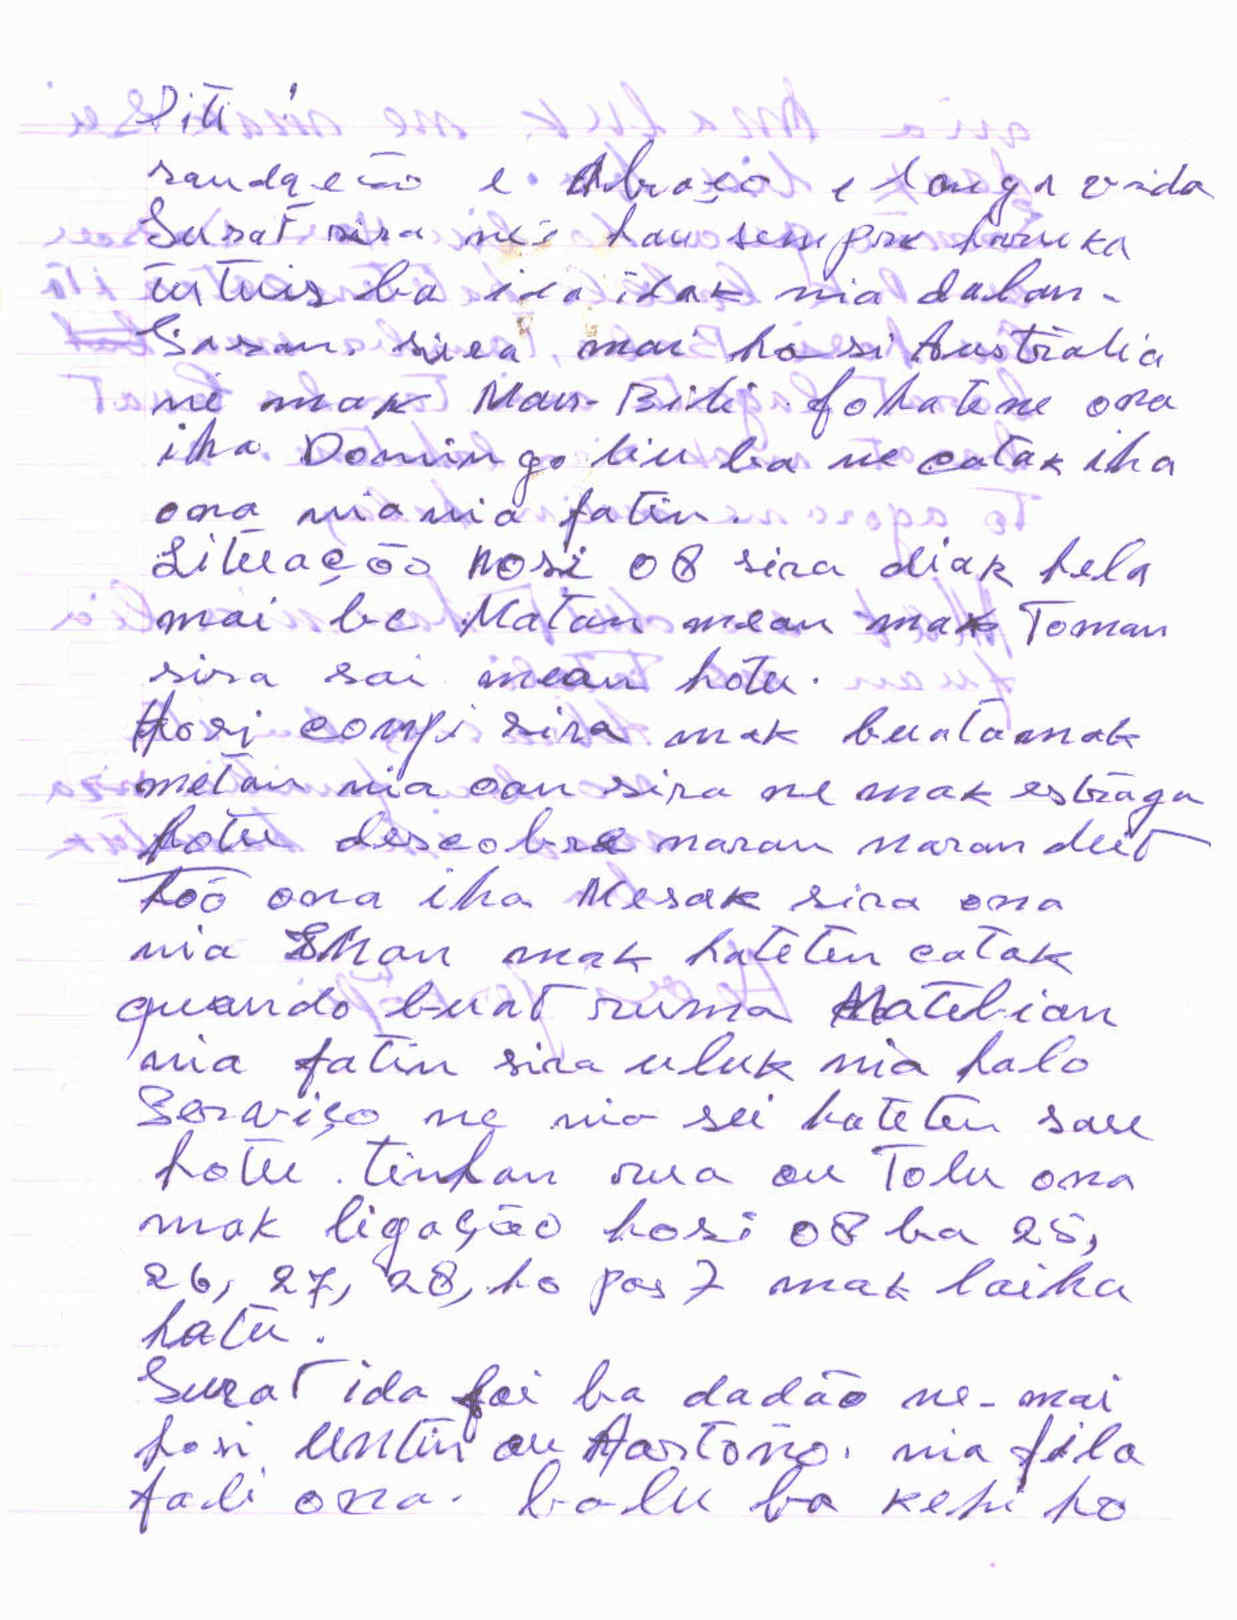 Ditti
saudação e Abraço e longa vida
Surat sira né'e hau sempre haruka
tutuir ba ida idak nia dalan-
Sasan sira mai hosi Australia
ne mak Mau-Bili fo hatene ona
iha Domingo liu ba ne catak iha
ona nia nia fatin.
Situação hosi 08 sira diak hela
mai be Matan mean mak Toman
sira sai mean hotu.
Hosi conyi sira mak buata mak
metan nia oan sira ne mak estraga
hotu descobre naran naran deit
Too ona iha Mesak sira ona
nia Shan mak hateten catak
quando buat ruma Matebian
nia fatin sira uluk nia halo
Serviço ne nia sei hateten sae
hotu. tinhan rua ou Tolu ona
mak ligação hosi 08 ba 25,
26, 27, 28, ho pos 7 mak laiha
hatu.
Surat ida foi ba dadão ne-mai
hosi Untin ou Hartono. nia fila
fali ona. balu ba kehi ho